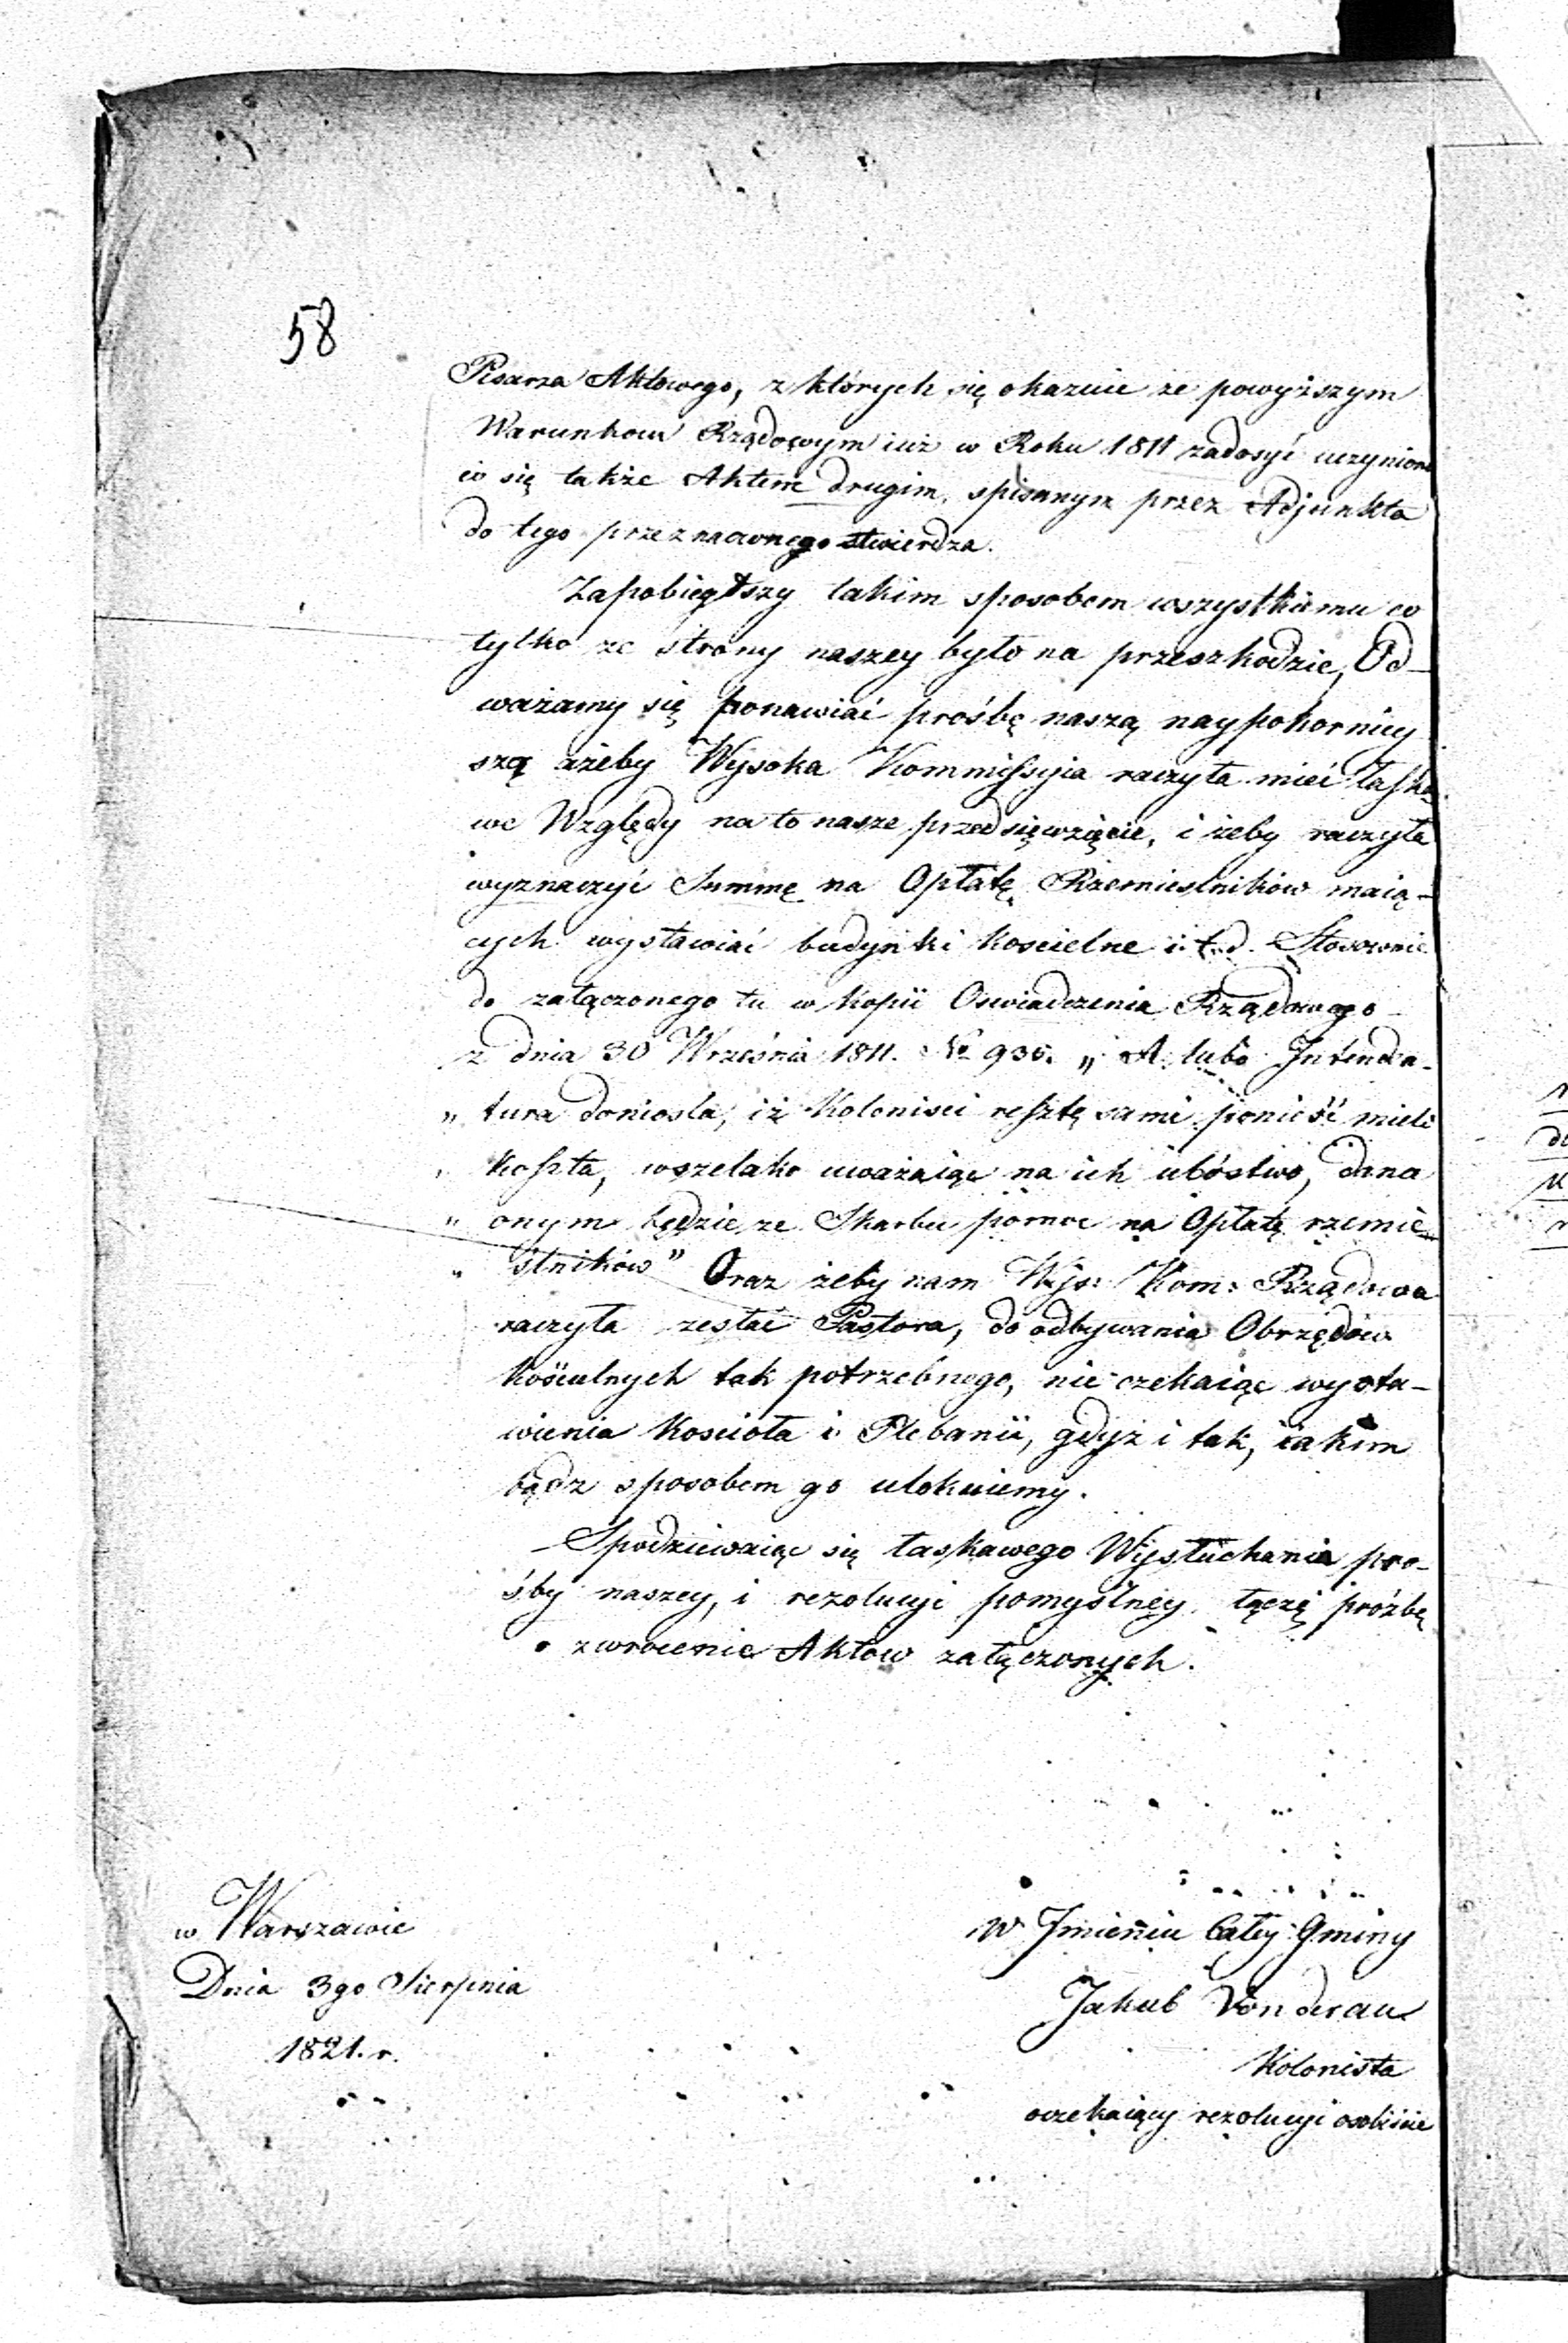 58
Pisarza Aktowego, z których się okazuie że powyższym
Warunkom Rządowym iuż w Roku 1811 zadosyć uczyniono
co się także Aktem drugim, spisanym przez Adjunkta
do tego przeznaczonego stwierdza.
Zapobiegłszy takim sposobem wszystkiemu co
tylko ze strony naszey było na przeszkodzie, Od-
ważamy się ponawiać prośbę naszą naypokorniey
szą ażeby Wysoka Kommissyia raczyła mieć łaska
we Względy na to nasze przedsięwzięcie, i żeby raczyła
wyznaczyć Summę na Opłatę Rzemieslników maią-
cych wystawiać budynki koscielne i. t. d. Stosownie
do załączonego tu w kopii Oswiadczenia Rządowego
z dnia 30 Września 1811. No 935. „ A lubo Intenda-
„ tura doniosla, iż Kolonisci resztę sami ponieść mieli
„ koszta, wszelako uważaiąc na ich ubóstwo, dana
„ onym będzie ze Skarbu pomoc na Opłatę rzemie
„ slników" Oraz żeby nam Wys: Kom: Rządowa
raczyła zesłać Pastora, do odbywania Obrzędów
kościelnych tak potrzebnego, nie czekaiąc wysta-
wienia Kosciola i Plebanii, gdyż i tak, iakim
bądz sposobem go ulokuiemy.
Spodziewaiąc się łaskawego Wysłuchania pro-
śby naszey, i rezolucyi pomyslney łączę próźbę
o zwrocenie Aktow załączonych.
w Warszawie
Dnia 3go Sierpnia
1821. r.
W Imieniu Całey Gminy
Jakub Vonderau
Kolonista
oczekaiący rezolucyi osobiscie